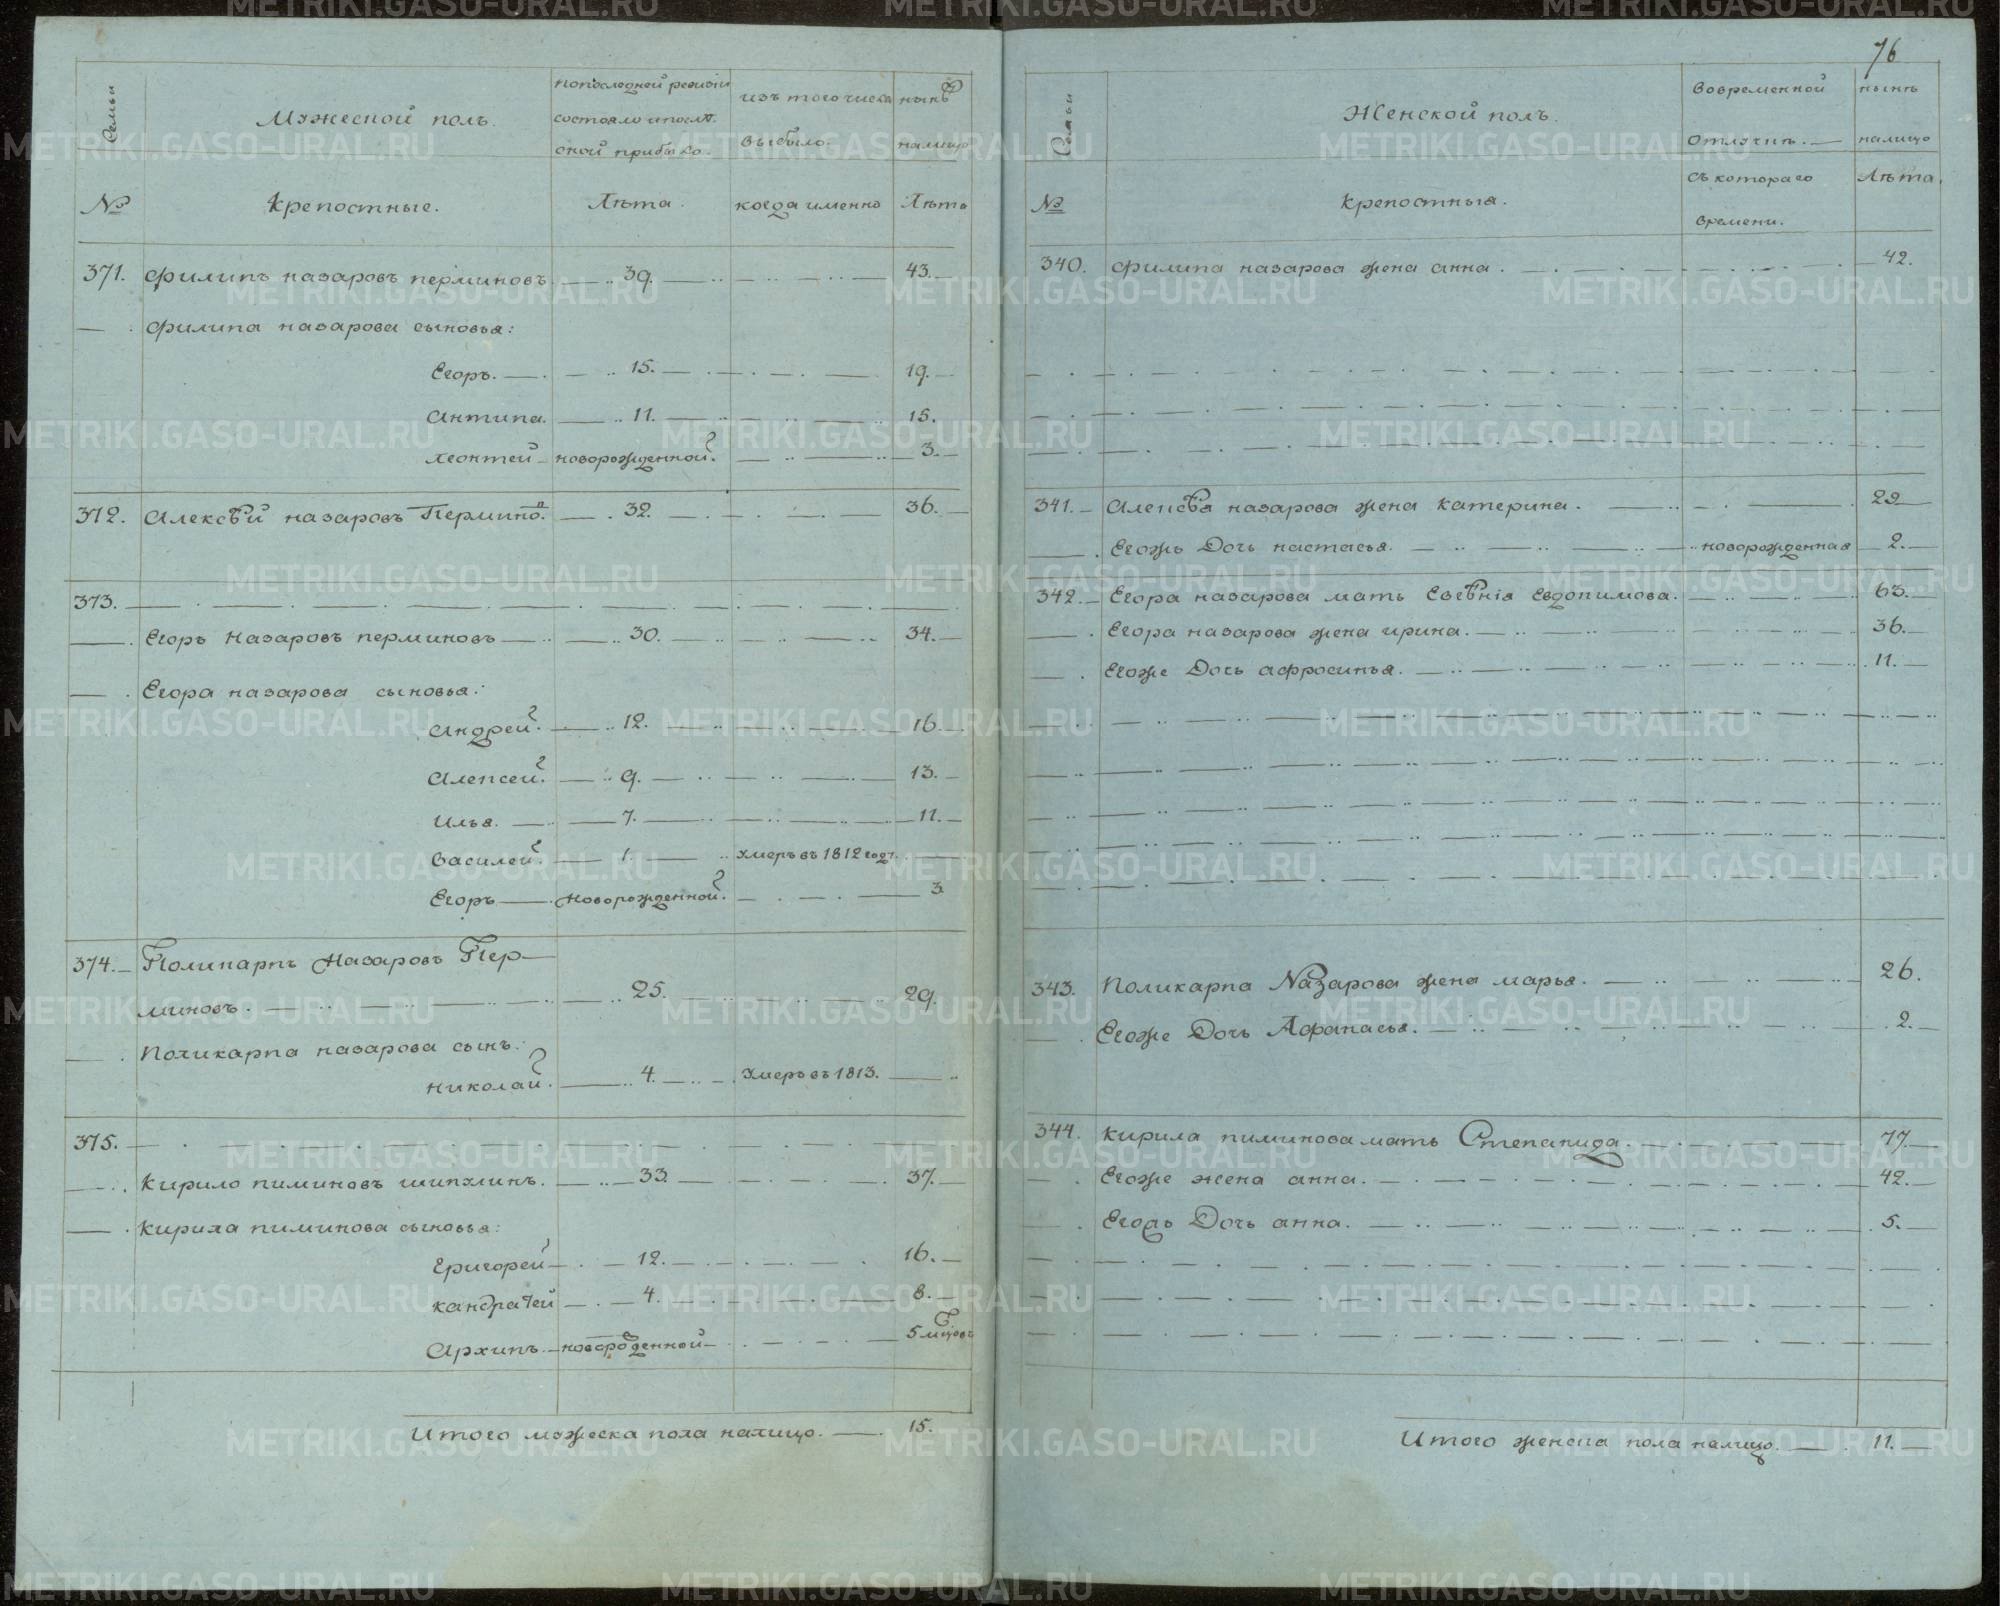 76
Семьи
Мужеской полъ.
по последней ревизіи
состояло и после
оной прибыло.
изъ того числа
выбыло.
нынѣ
налицо
№
Крепостные.
Лѣта.
когда именно
Лѣта
371. Филипъ назаровъ перминовъ 39. 43.
Филипа назарова сыновья:
Егоръ. 15. 19.
Антипа. 11. 15.
Леонтей новорожденной. 3.
372. Алексѣй назаровъ Пермино.в 32. 36.
373.
Егоръ Назаровъ перминовъ 30. 34.
Егора назарова сыновья:
Андрей. 12. 16.
Алексей. 9. 13.
Илья. 7. 11.
Василей. 1. умеръ въ 1812 году.
Егоръ новорожденной. 3
374. Поликарпъ Назаровъ Пер-
миновъ. 25. 29.
Поликарпа назарова сынъ:
николай. 4. умеръ въ 1813.
375.
Кирило пиминовъ шипулинъ. 33. 37.
Кирила пиминова сыновья:
Григорей 12. 16.
Кандратей 4. 8.
Архипъ. новорожденной 5 мцовъ
Итого мужеска пола налицо. 15.
Семьи
Женской полъ.
Вовременной
отлучкѣ.
нынѣ
налицо
№
Крепостныя.
съ котораго
времени.
Лѣта.
340. Филипа назарова жена анна. 42.
341. Алексѣя назарова жена катерина. 29
Егожъ Дочь настасья. новорожденная 2.
342. Егора назарова мать Евгѣнія Евдокимова. 63.
Егора назарова жена ирина. 36.
Егоже Дочь афросинья. 11.
343. Поликарпа Назарова жена марья. 26.
Егоже Дочь Афанасья. 2.
344. Кирила пиминова мать Степанида. 77.
Егоже жена анна. 42.
Егожъ Дочь анна. 5.
Итого женска пола налицо. 11.
METRIKI.GASO-URAL.RU